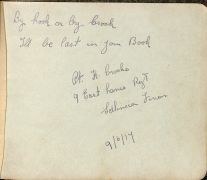 By hook or by crook
I'll be last in your Book
Pt. H. Crooks
9 East Lancs Regt
Salonica
9/6/17